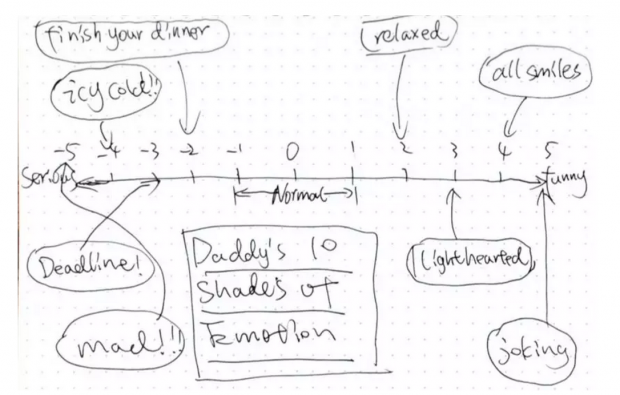 finish your dinner
relaxed
icy cold!!
all smiles
-5 -4 -3 -2 -1 0 1 2 3 4 5
Serious
funny
Normal
Deadline!
Lighthearted
Daddy's 10
Shades of
Emotion
mad!!!
joking